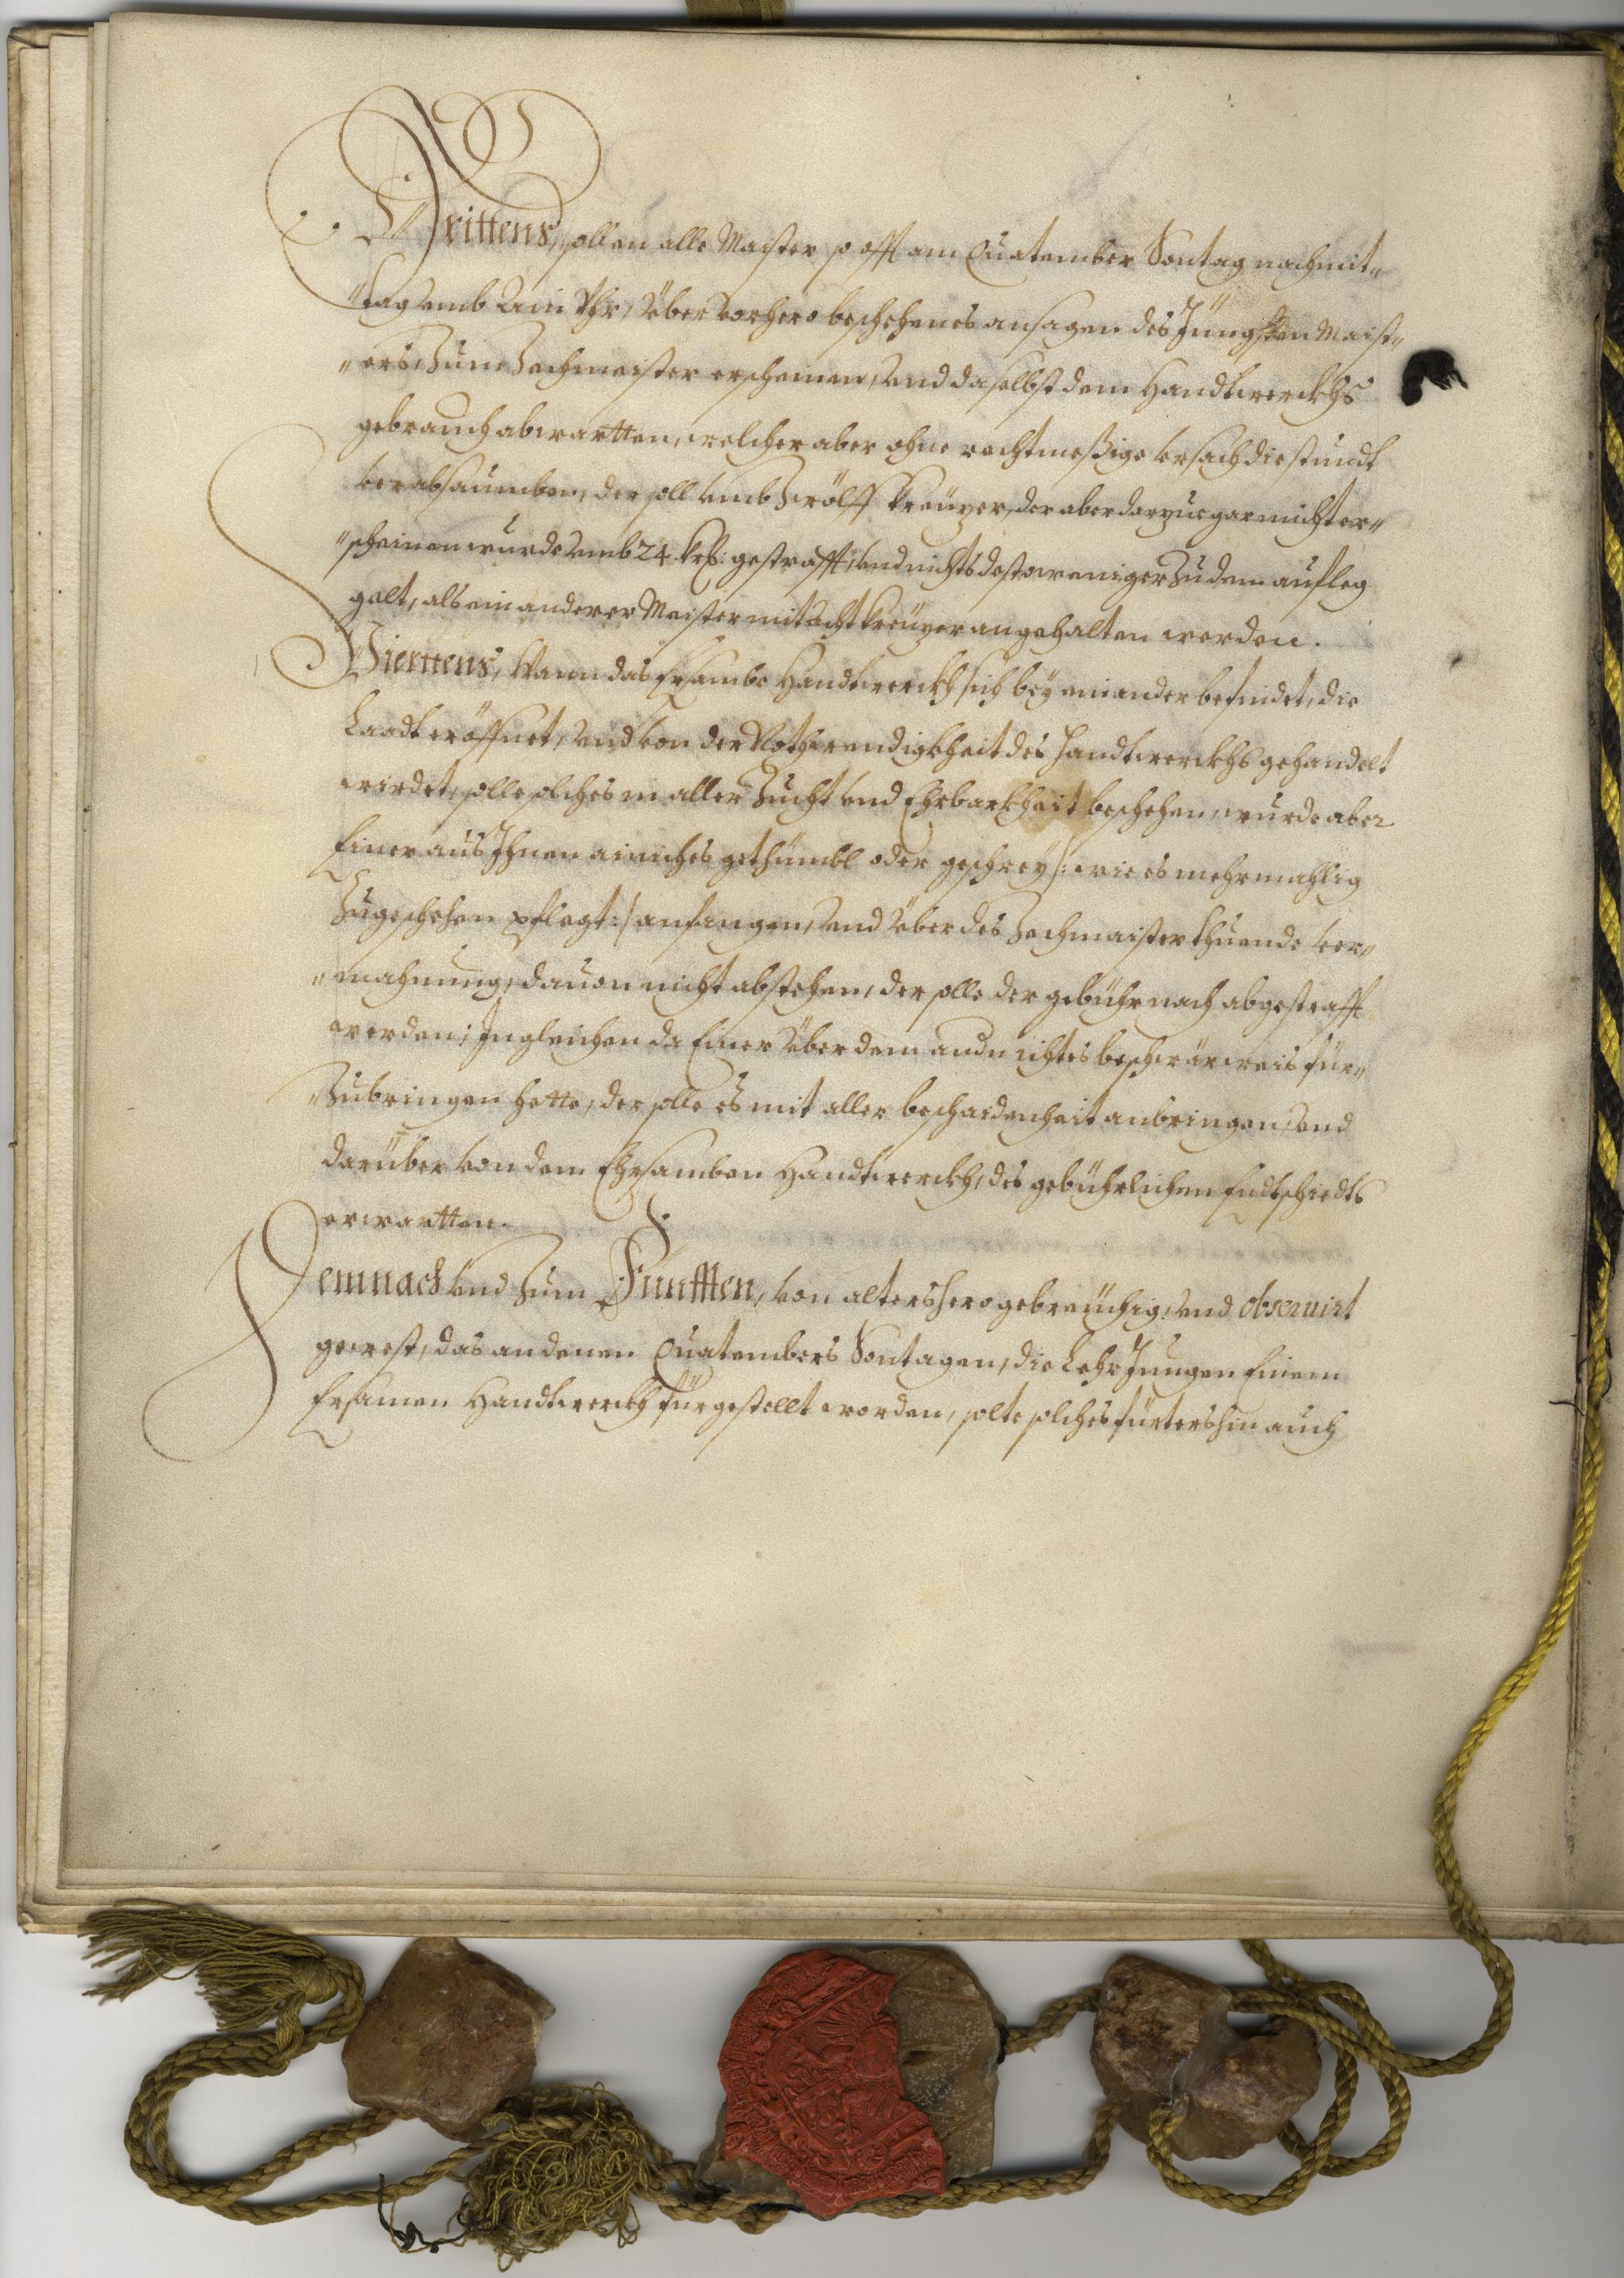 Drittens, sollen alle Maister so offt am Quatember Sontag nachmit„
„tag vmb Ain Vhr, über vorhero beschehenes ansagen des Jüngsten Maist„
„ers, Zum Zechmaister erscheinen, vnd daselbst dem Handtwerckhs
gebrauch abwartten, welcher aber ohne rechtmeßige vrsach die stundt
verabsaumben, der soll vmb Zwölff Kreuzer, der aber darzue gar nicht er„
„scheinen wurde vmb 24. kr: gestrafft, vnd nichts desto weniger Zu dem aufleg
gelt, als ein anderer Maister mit acht Kreuzer angehalten werden.
Vierttens, Wann das Ersambe Handtwerckh sich bey einander befindet, die
Laadt eröffnet, vnd von der Nothwendigkheit des Handtwerckhs gehandelt
wirdet, solle solches in aller Zucht vnd Ehrbarkheit beschehen, wurde aber
Einer aus Ihnen ainiches gethümbl oder geschrey /: wie es mehrmahlig
Zugeschehen pflegt :/ anfangen, vnd über des Zechmaister thuende ver„
„mahnung, dauon nicht abstehen, der solle der gebühr nach abgestrafft
werden; Ingleichen da Einer über dem andn ichtes beschwärweis für„
„Zubringen hette, der solle es mit aller beschaidenheit anbringen, vnd
darüber von dem Ehrsamben Handtwerckh, des gebührlichen Endtschiedts
erwartten.
Demnach vnd Zum Fünfften, von altershero gebreuchig, vnd obseruirt
gewest, das an denen Quatembers Sontagen, die Lehr Jungen Einem
Ersamen Handtwerckh fürgestellt worden, solte solches fürtershin auch